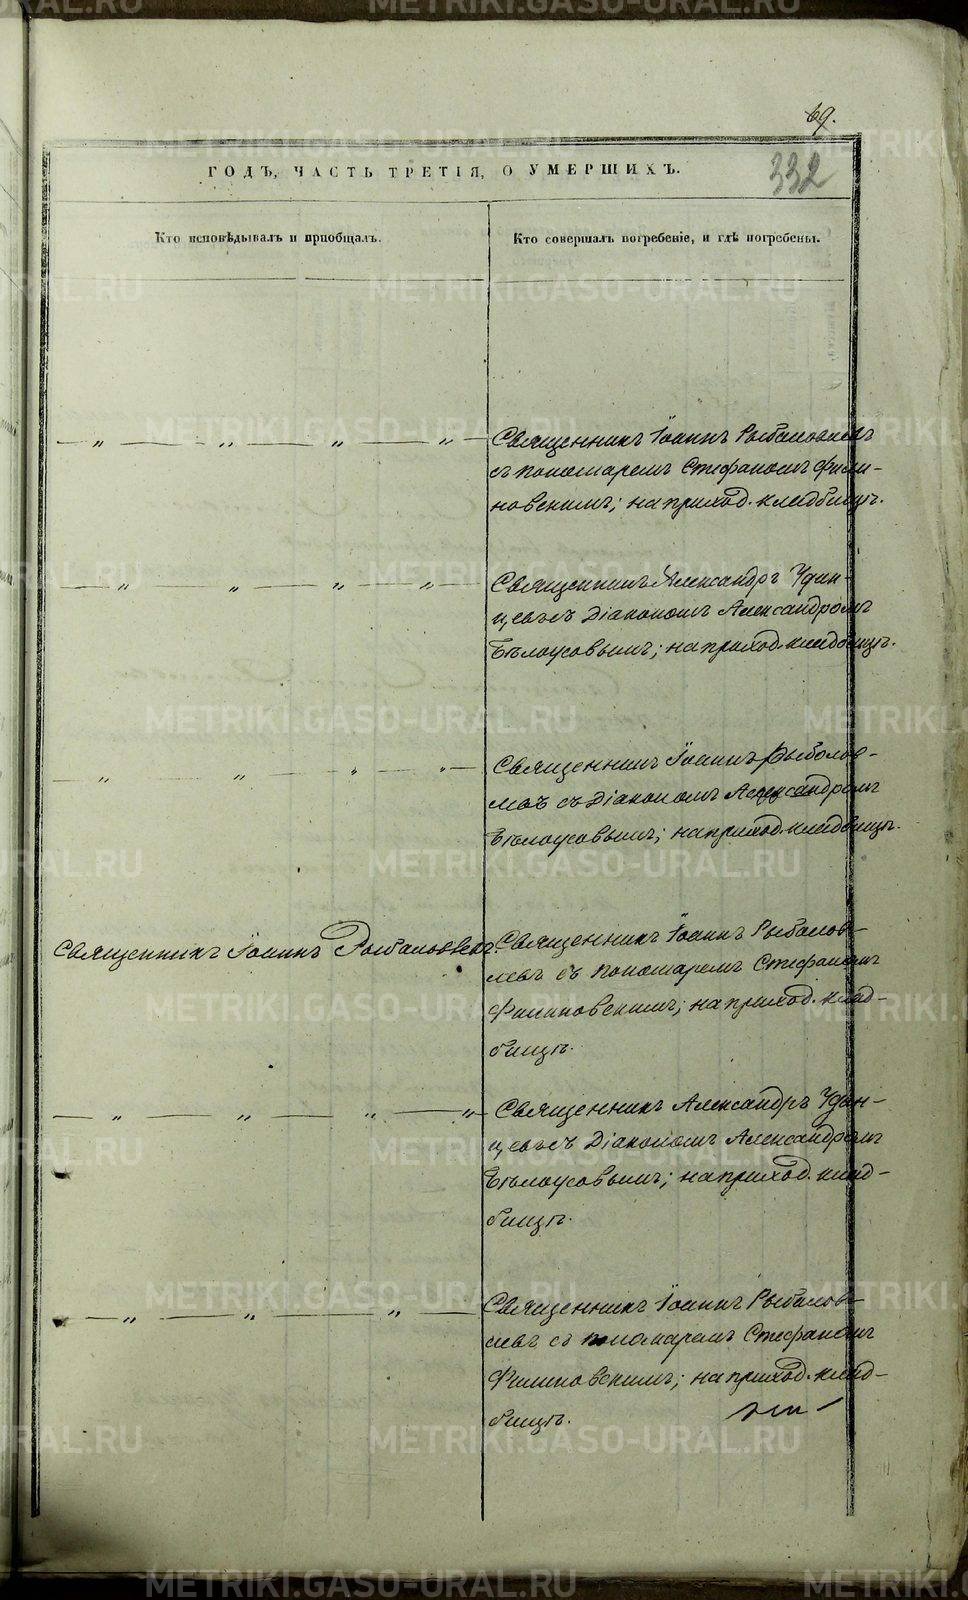 69.
332
ГОДЪ, ЧАСТЬ ТРЕТІЯ, О УМЕРШИХЪ.
Кто исповѣдывалъ и пріобщалъ.
Кто совершалъ погребеніе, и гдѣ погребены.
— „ — „ — „ — „ —
Священникъ Іоаннъ Рыболовлевъ
съ пономаремъ Стефаномъ Фили-
новскимъ; на приход. кладбищѣ.
— „ — „ — „ — „ —
Священникъ Александръ Удин-
цевъ съ Діакономъ Александромъ
Бѣлоусовымъ; на приход. кладбищѣ.
— „ — „ — „ — „ —
Священникъ Іоаннъ Рыболов-
левъ съ Діакономъ Александромъ
Бѣлоусовымъ; на приход. кладбищѣ.
Священникъ Іоаннъ Рыболовлевъ.
Священникъ Іоаннъ Рыболов-
левъ съ пономаремъ Стефаномъ
Филиновскимъ; на приход. клад-
бищѣ.
— „ — „ — „ — „ —
Священникъ Александръ Удин-
цевъ съ Діакономъ Александромъ
Бѣлоусовымъ; на приход. клад-
бищѣ.
— „ — „ — „ —
Священникъ Іоаннъ Рыболов-
левъ съ пономаремъ Стефаномъ
Филиновскимъ; на приход. клад-
бищѣ.
METRIKI.GASO-URAL.RU